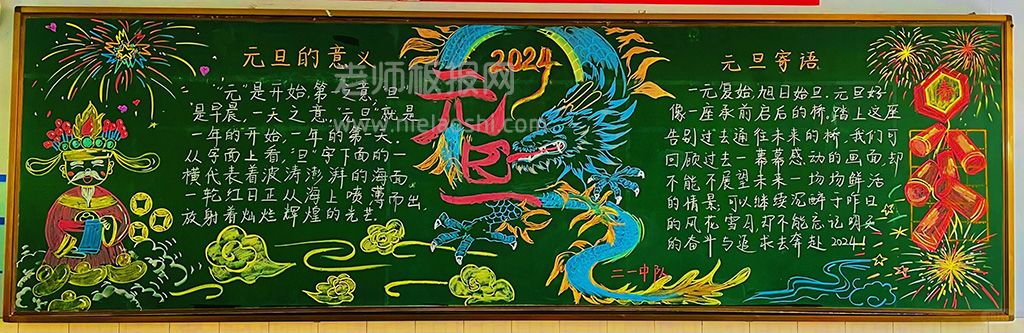 元旦的意义
"元"是开始,第一之意,"旦"
是早晨,一天之意,元旦就是
一年的开始,一年的第一天.
从字面上看,"旦"字下面的一
横代表着波涛澎湃的海面
一轮红日正从海上喷薄而出
放射着灿烂辉煌的光芒.
2024
元旦
老师板报网
www.melaoshi.com
元旦寄语
一元复始,旭日始旦,元旦好
像一座承前启后的桥.踏上这座
告别过去通往未来的桥,我们可
回顾过去一幕幕感动的画面,却
不能不展望未来一场场鲜活
的情景,可以继续沉醉于昨日
的风花雪月,却不能忘记明天
的奋斗与追求去奔赴2024!
二一中队
春